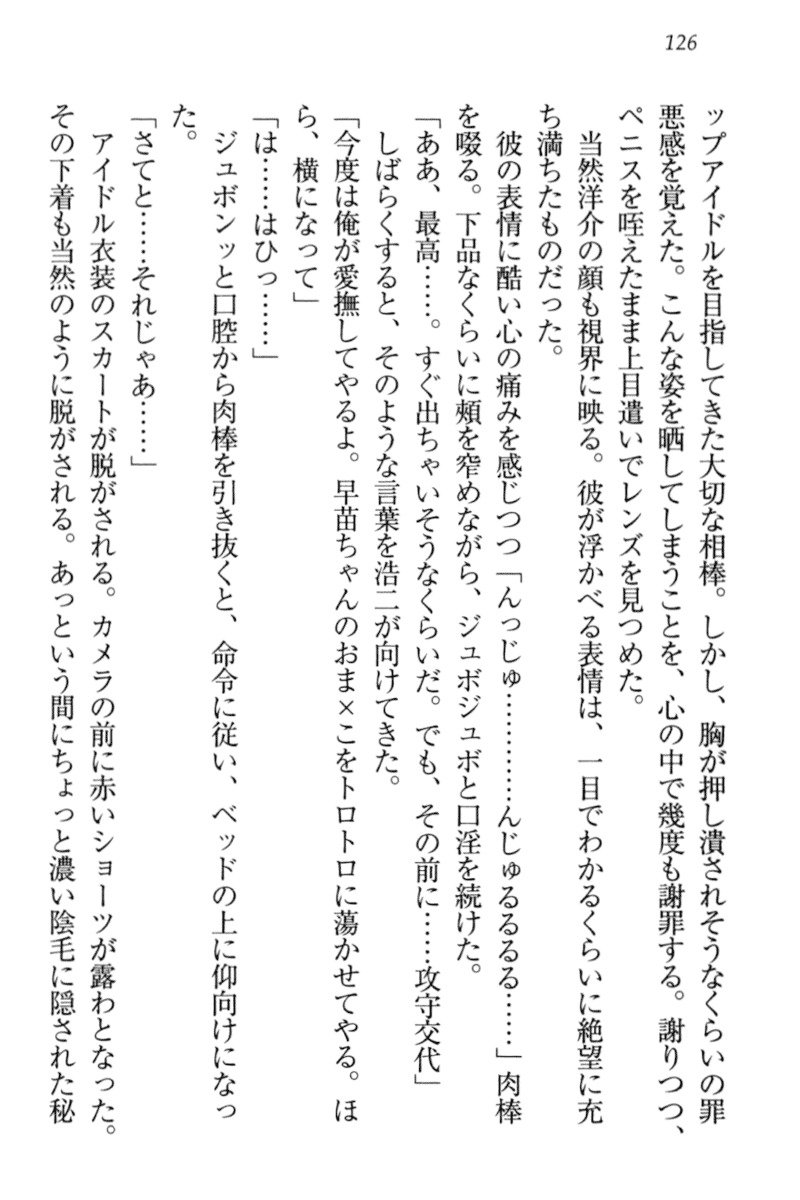 126
ップアイドルを目指してきた大切な相棒。しかし、胸が押し潰されそうなくらいの罪
悪感を覚えた。こんな姿を晒してしまうことを、心の中で幾度も謝罪する。謝りつつ、
ペニスを咥えたまま上目遣いでレンズを見つめた。
当然洋介の顔も視界に映る。彼が浮かべる表情は、一目でわかるくらいに絶望に充
ち満ちたものだった。
彼の表情に酷い心の痛みを感じつつ「んっじゅ…………んじゅるるるる……」肉棒
を啜る。下品なくらいに頰を窄めながら、ジュボジュボと口淫を続けた。
「ああ、最高……。すぐ出ちゃいそうなくらいだ。でも、その前に……攻守交代」
しばらくすると、そのような言葉を浩二が向けてきた。
「今度は俺が愛撫してやるよ。早苗ちゃんのおま×こをトロトロに蕩かせてやる。ほ
ら、横になって」
「は……はひっ……」
ジュボンッと口腔から肉棒を引き抜くと、命令に従い、ベッドの上に仰向けになっ
た。
「さてと……それじゃあ……」
アイドル衣装のスカートが脱がされる。カメラの前に赤いショーツが露わとなった。
その下着も当然のように脱がされる。あっという間にちょっと濃い陰毛に隠された秘